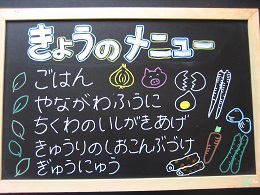 きょうのメニュー
ごはん
やながわふうに
ちくわのいしがきあげ
きゅうりのしおこんぶづけ
ぎゅうにゅう